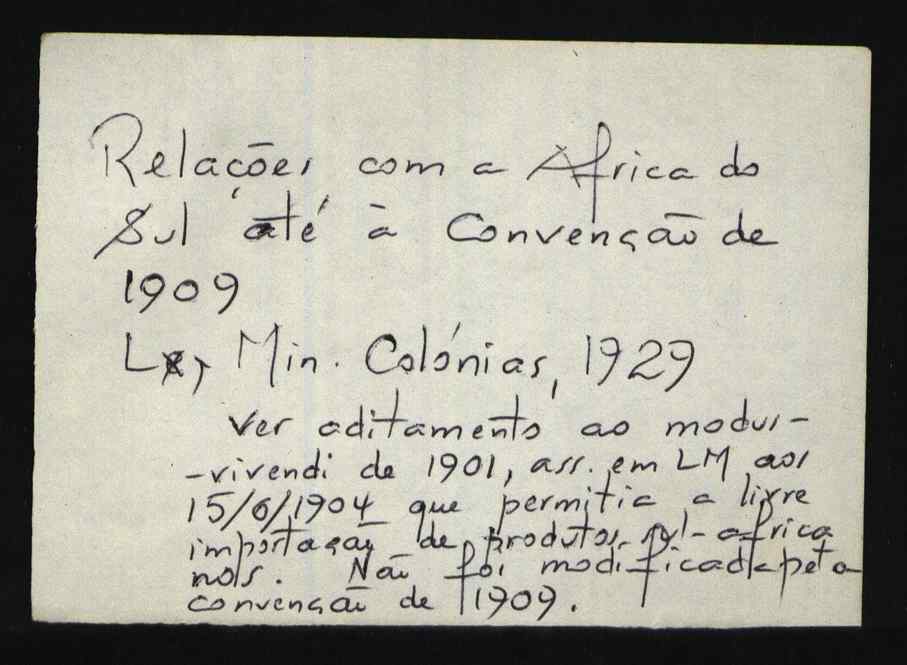 Relações com a Africa do
Sul até à Convenção de
1909
Lx, Min. Colónias, 1929
Ver aditamento ao modus-
-vivendi de 1901, ass. em LM aos
15/6/1904 que permitia a livre
importação de produtos sul-africa
nos. Não foi modificada pela
convenção de 1909.